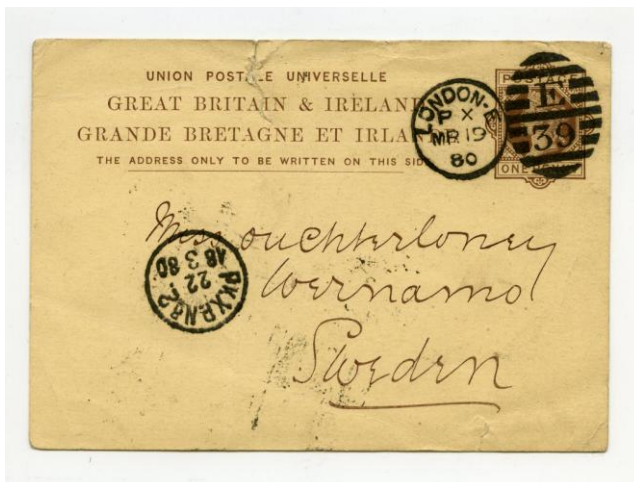 UNION POSTALE UNIVERSELLE
GREAT BRITAIN & IRELAND
GRANDE BRETAGNE ET IRLA
THE ADDRESS ONLY TO BE WRITTEN ON THIS SID
POSTAGE
ONE
LONDON-E
P X
MR 19
80
E
39
Miss ouchterloney
Wernamo
Sweden
PKXP.No 2
22
18 3 80